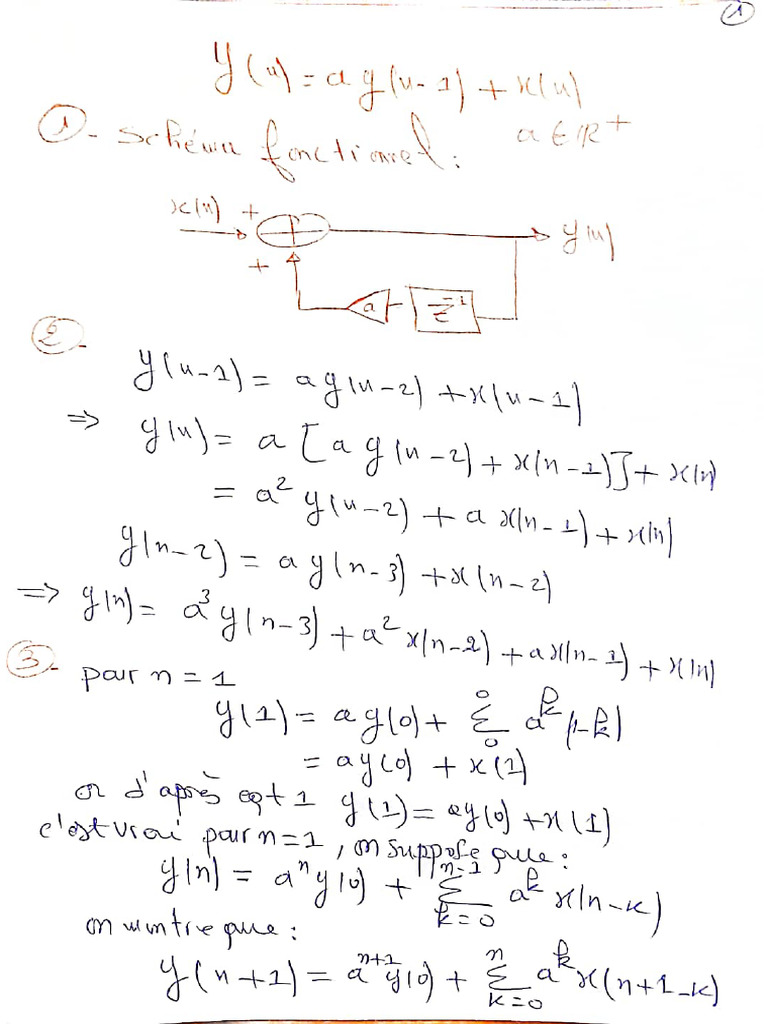 1
y(n) = a y(n-1) + x(n)
1 - schéma fonctionnel : a ∈ ℝ+
x(n) +
+ y(n)
+
a z⁻¹
2 -
y(n-1) = a y(n-2) + x(n-1)
⇒ y(n) = a [a y(n-2) + x(n-1)] + x(n)
= a² y(n-2) + a x(n-1) + x(n)
y(n-2) = a y(n-3) + x(n-2)
⇒ y(n) = a³ y(n-3) + a² x(n-2) + a x(n-1) + x(n)
3 - pour n = 1
y(1) = a y(0) + Σ₀⁰ aᵏ (1-k)
= a y(0) + x(1)
or d'après eqt 1 y(1) = a y(0) + x(1)
c'est vrai pour n=1, on suppose que :
y(n) = aⁿ y(0) + Σ_{k=0}^{n-1} aᵏ x(n-k)
on montre que :
y(n+1) = aⁿ⁺¹ y(0) + Σ_{k=0}^{n} aᵏ x(n+1-k)